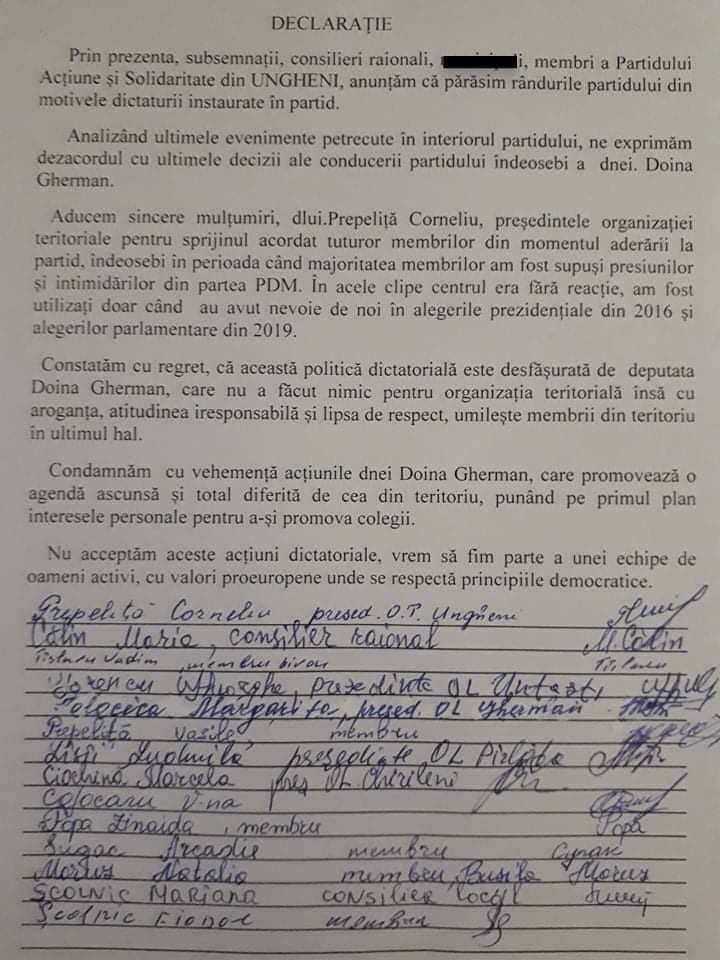 DECLARAȚIE
Prin prezenta, subsemnații, consilieri raionali, membri a Partidului
Acțiune și Solidaritate din UNGHENI, anunțăm că părăsim rândurile partidului din
motivele dictaturii instaurate în partid.
Analizând ultimele evenimente petrecute în interiorul partidului, ne exprimăm
dezacordul cu ultimele decizii ale conducerii partidului îndeosebi a dnei. Doina
Gherman.
Aducem sincere mulțumiri, dlui.Prepeliță Corneliu, președintele organizației
teritoriale pentru sprijinul acordat tuturor membrilor din momentul aderării la
partid, îndeosebi în perioada când majoritatea membrilor am fost supuși presiunilor
și intimidărilor din partea PDM. În acele clipe centrul era fără reacție, am fost
utilizați doar când au avut nevoie de noi în alegerile prezidențiale din 2016 și
alegerilor parlamentare din 2019.
Constatăm cu regret, că această politică dictatorială este desfășurată de deputata
Doina Gherman, care nu a făcut nimic pentru organizația teritorială însă cu
aroganța, atitudinea iresponsabilă și lipsa de respect, umilește membrii din teritoriu
în ultimul hal.
Condamnăm cu vehemență acțiunile dnei Doina Gherman, care promovează o
agendă ascunsă și total diferită de cea din teritoriu, punând pe primul plan
interesele personale pentru a-și promova colegii.
Nu acceptăm aceste acțiuni dictatoriale, vrem să fim parte a unei echipe de
oameni activi, cu valori proeuropene unde se respectă principiile democratice.
Prepeliță Corneliu președ. O.T. Ungheni
Călin Maria, consilier raional M. Călin
Vadim, membru birou
Gheorghe, președinte OL
Margarita, președ. OL Gherman
Prepeliță Vasile membru
Ludmila președinte OL Pîrlița
Ciochina Marcela preș OL Chirileni
Cojocaru
Popa Zinaida, membru Popa
Arcadie membru
Moruz Natalia membru, Busila Moruz
Școlnic Mariana consilier local
Școlnic membru